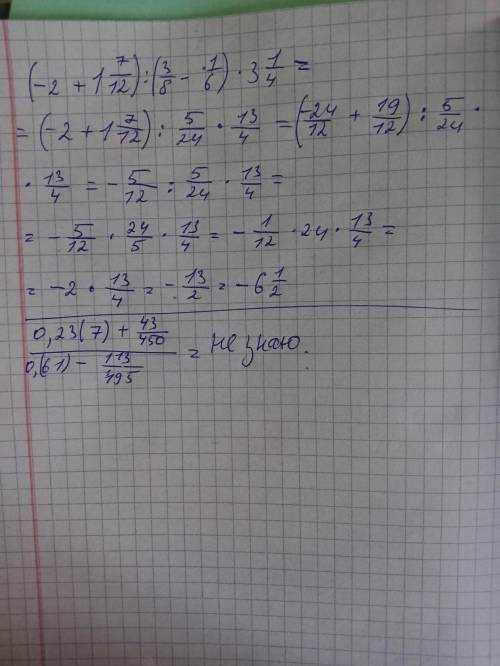 (-2 + 1 7/12) : (3/8 - 1/6) · 3 1/4 =
= (-2 + 1 7/12) : 5/24 · 13/4 = (-24/12 + 19/12) : 5/24 ·
· 13/4 = - 5/12 : 5/24 · 13/4 =
= - 5/12 · 24/5 · 13/4 = - 1/12 · 24 · 13/4 =
= -2 · 13/4 = - 13/2 = -6 1/2
0,23(7) + 43/450
0,(61) - 113/495 = не знаю.